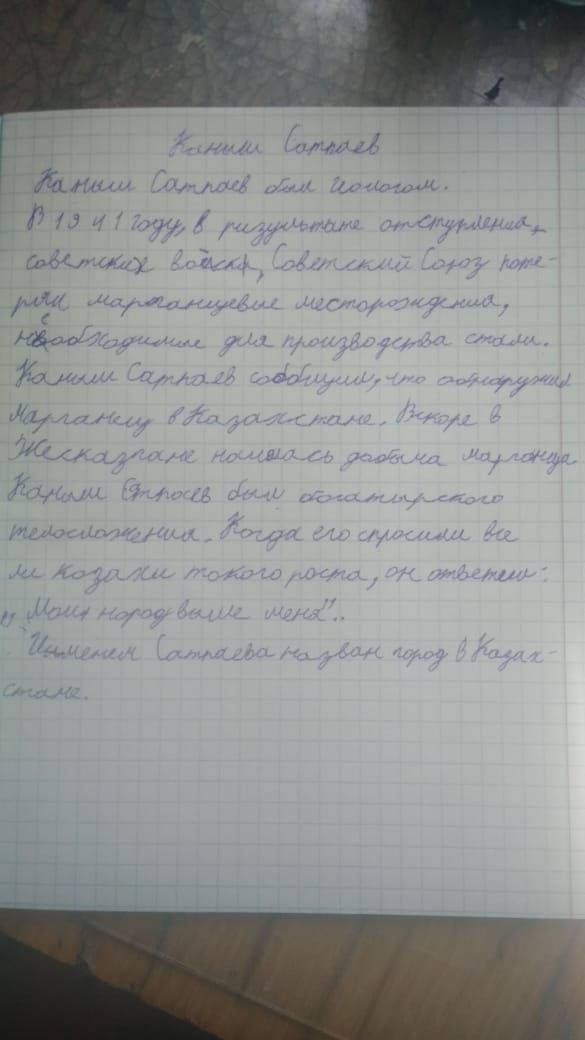 Каныш Сатпаев
Каныш Сатпаев был геологом.
В 1941 году, в ризультате отступления,
советских войска, Советский Союз поте-
рял марганцевые месторождения,
необходимые для производства стали.
Каныш Сатпаев сообщил, что обнаружил
марганец в Казахстане. Вскоре в
Жесказгане началась добыча марганца
Каныш Сатпаев был богатырского
телосложения. Когда его спросили все
ли козахи токого роста, он ответил:
"Мой народ выше меня"..
Именем Сатпаева назван город в Казах-
стане.